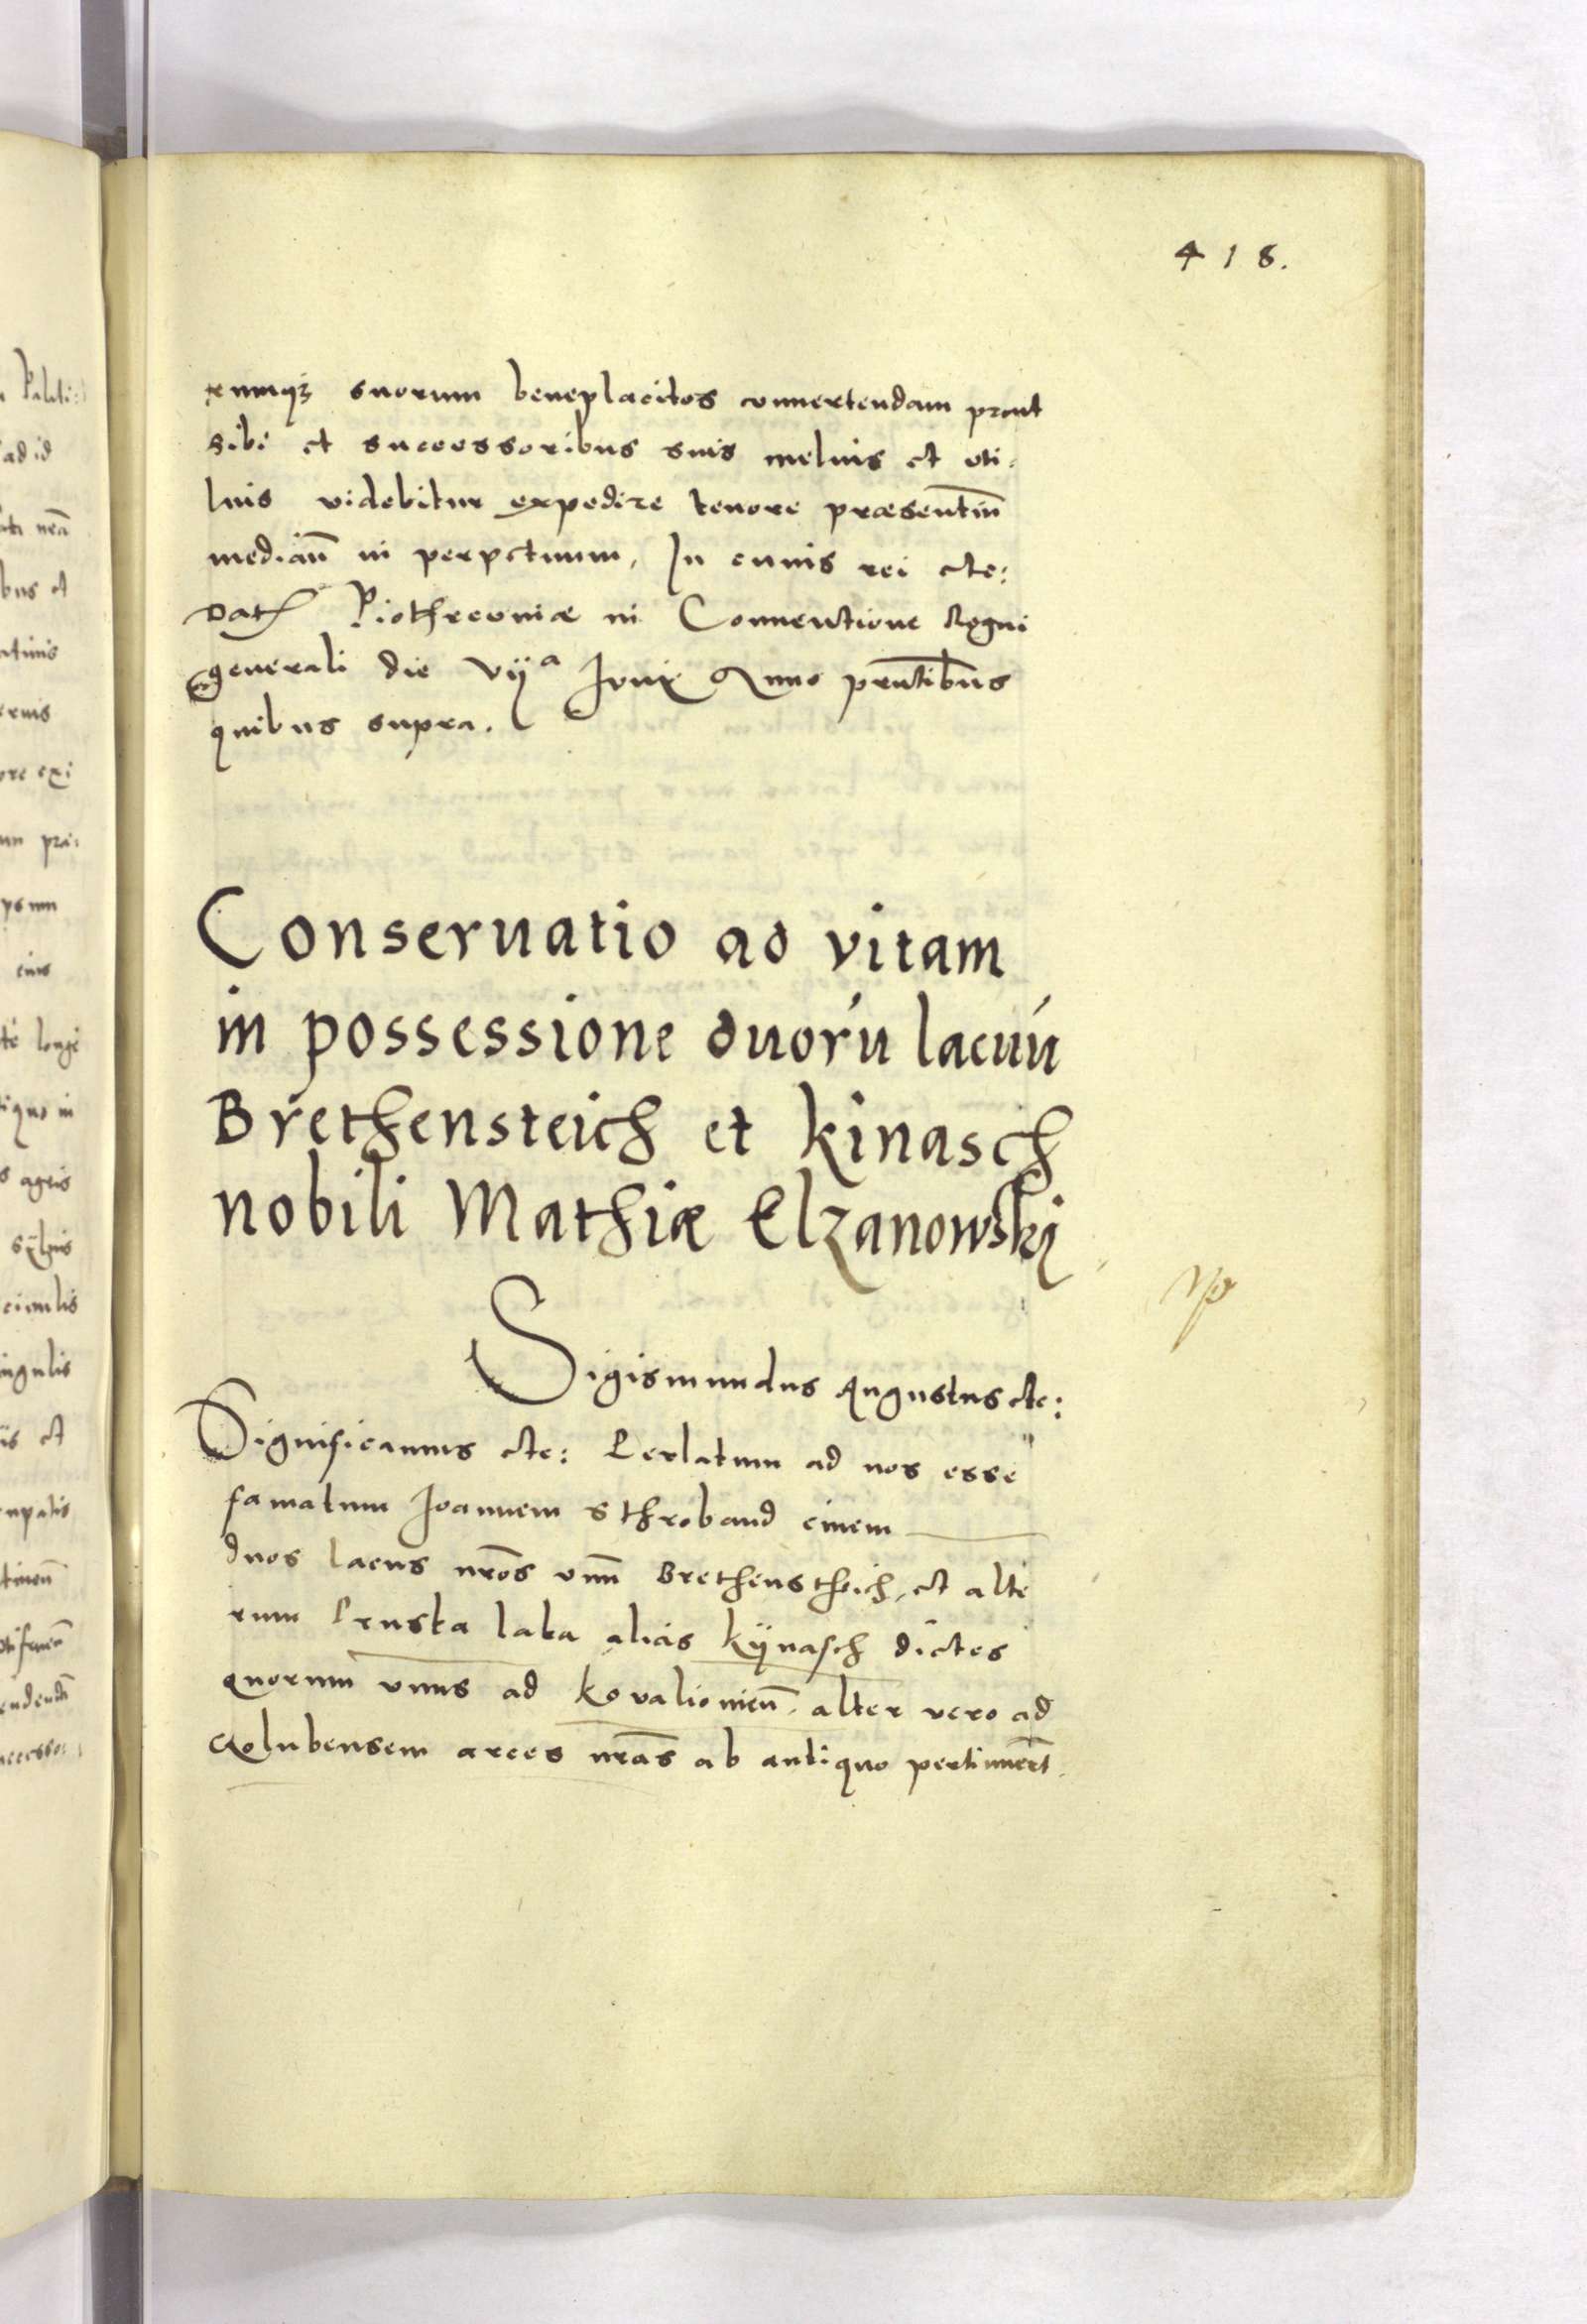 418.
rumqꝫ suorum beneplacitos conuertendam prout
sibi et successoribus suis melius et uti-
lius videbitur expedire tenore præsentiū
medianī in perpetuum, In cuius rei etc:
Dať Piothrcouiæ in Conuentione Regni
generali die vijª Junij Anno prntibus
quibus supra.
Conseruatio ad vitam
in possessione duorú lacuú
Brethensteich et Kinasch
nobili Mathiæ Elzanowskj
Sigismundus Augustus etc:
Significamus etc: Perlatum ad nos esse
famatum Joannem Sthroband ciuem
duos lacus nros vnū Brethenstheich, et alte
rum Pruska laka alias Kÿnasch dictos
quorum vnus ad Kovalionieñ. alter vero ad
Golubensem arces nras ab antiquo pertinuerūt
Palati:
ad id
nrā
bus et
ore exi
præ:
eius
té longé
tiquo in
s agris
sÿluis
singulis
is et